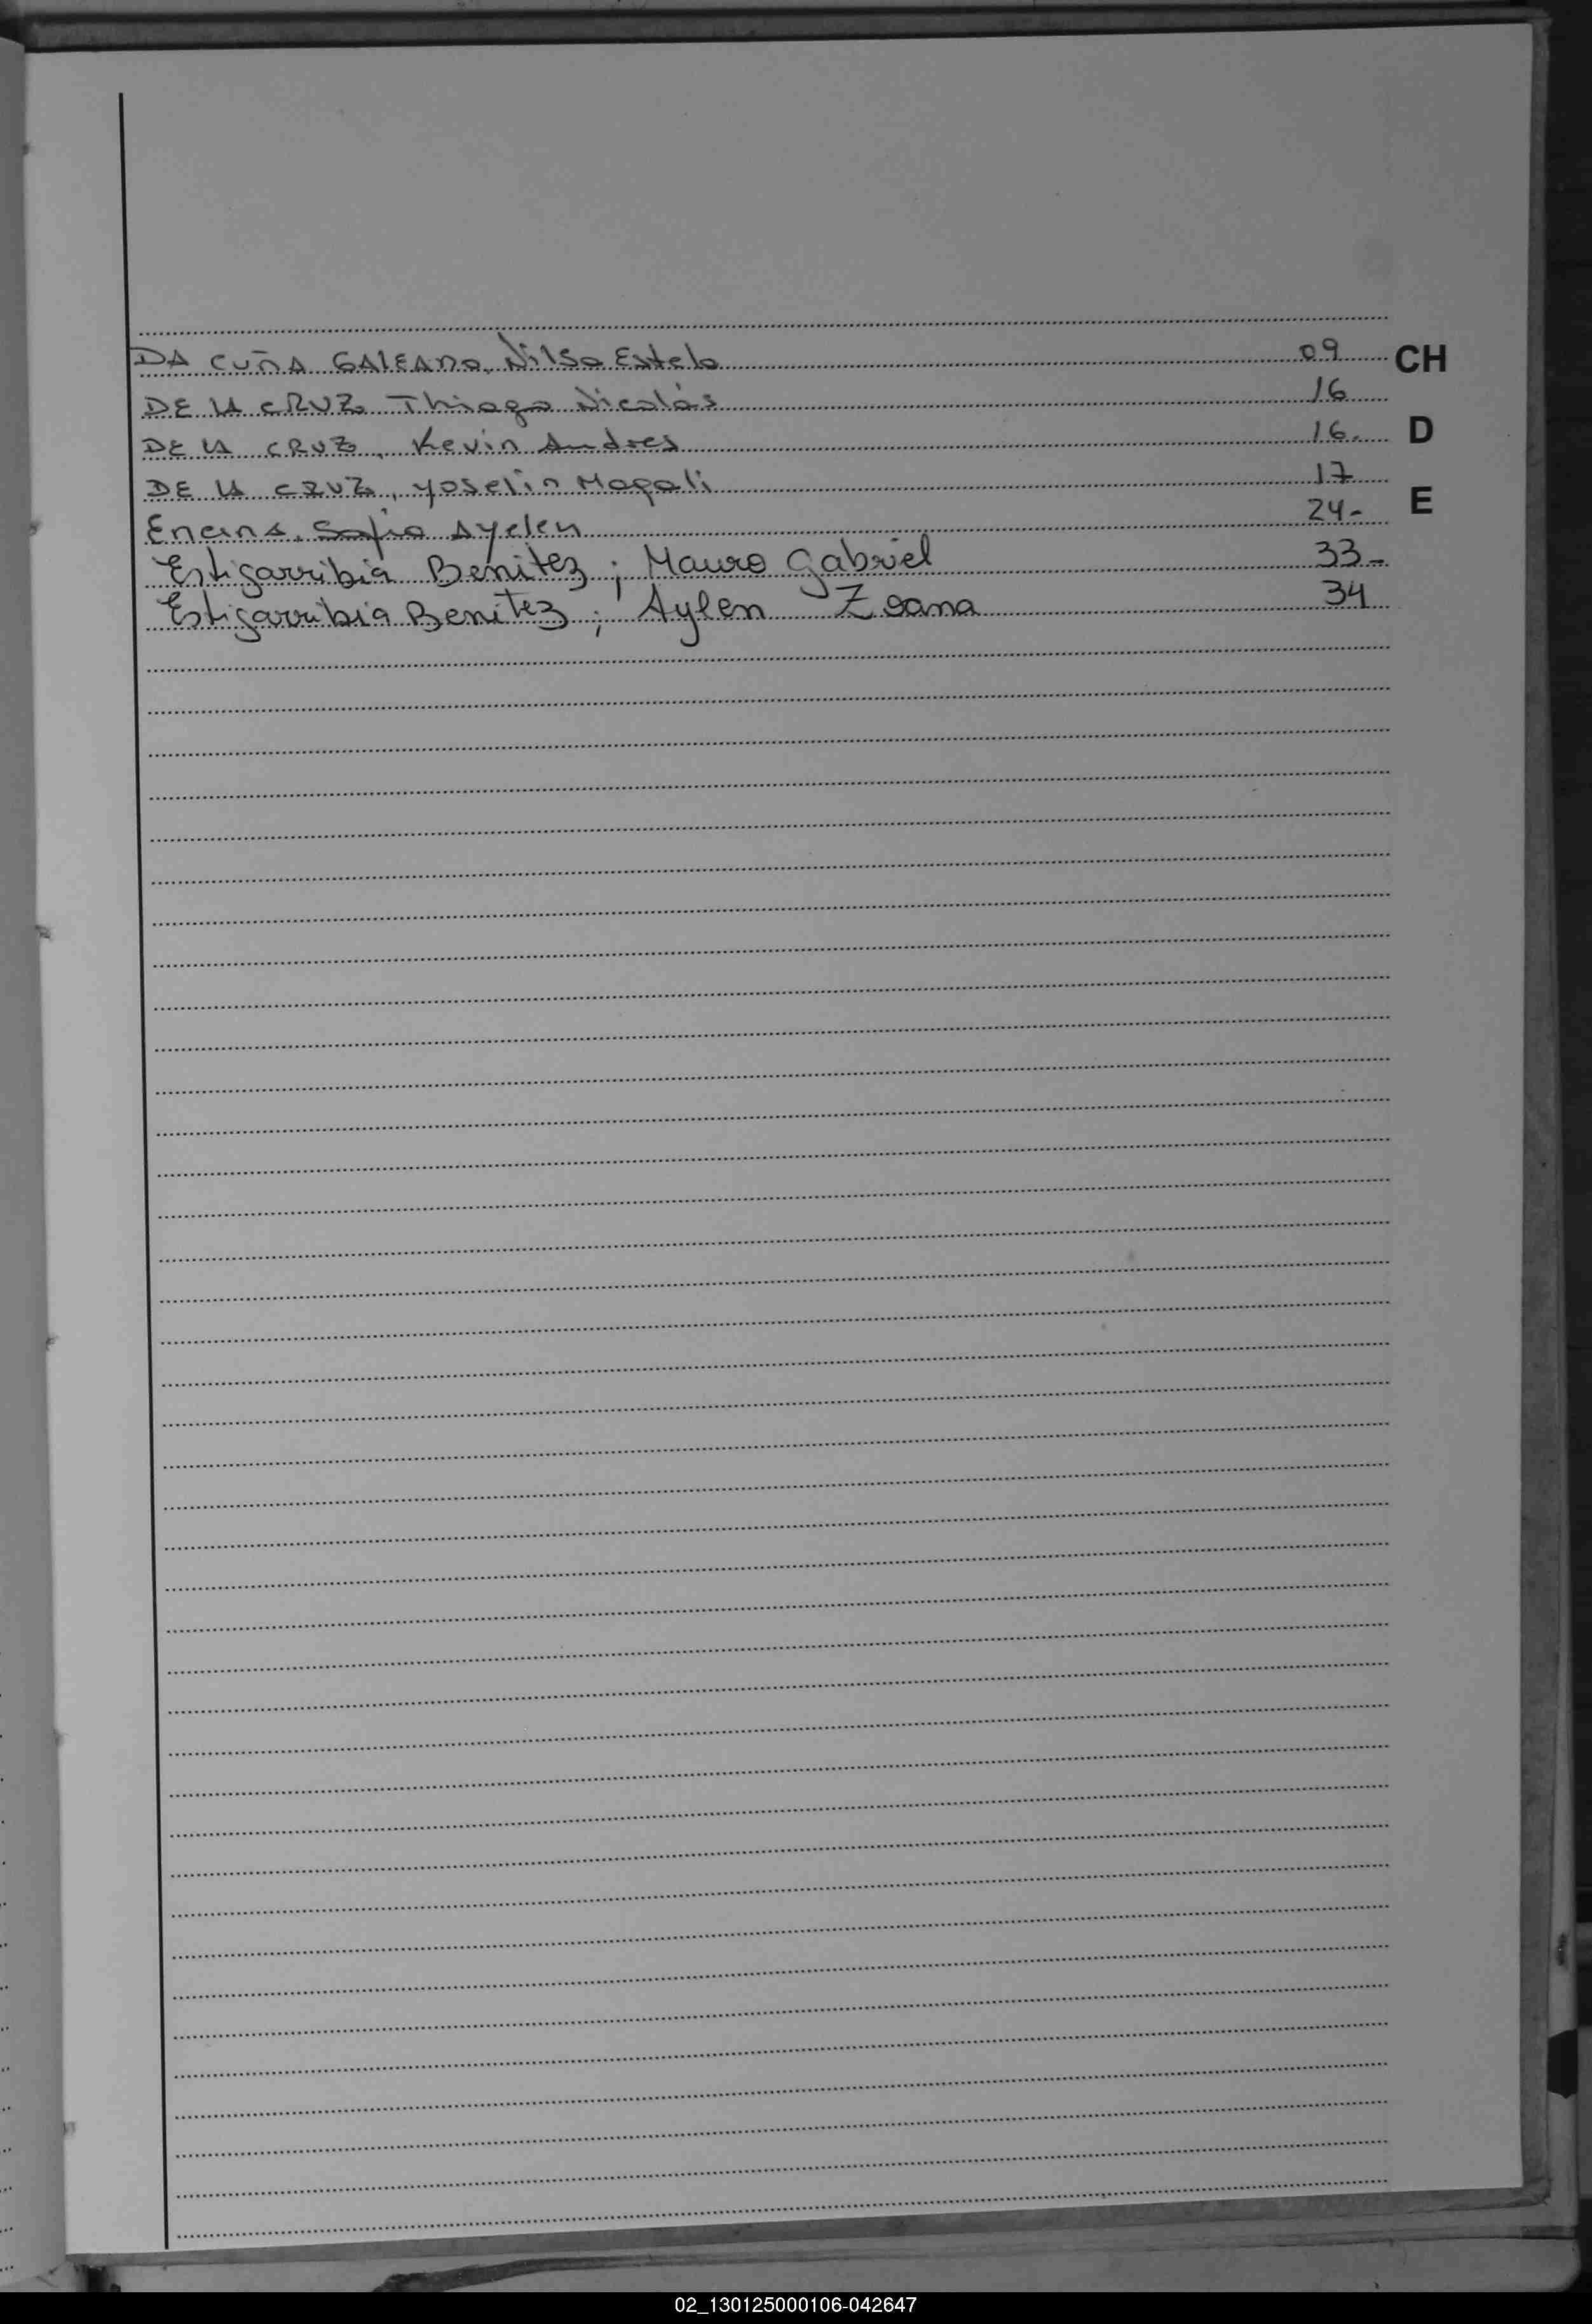 DA CUÑA GALEANO, Nilsa Estela 09 CH
DE LA CRUZ Thiago Nicolás 16
DE LA CRUZ, Kevin Andres 16. D
DE LA CRUZ, Yoselin Magali 17
Encina, Sofia Ayelen 24- E
Estigarribia Benitez; Mauro Gabriel 33-
Estigarribia Benitez; Aylen Zoana 34
02_130125000106-042647